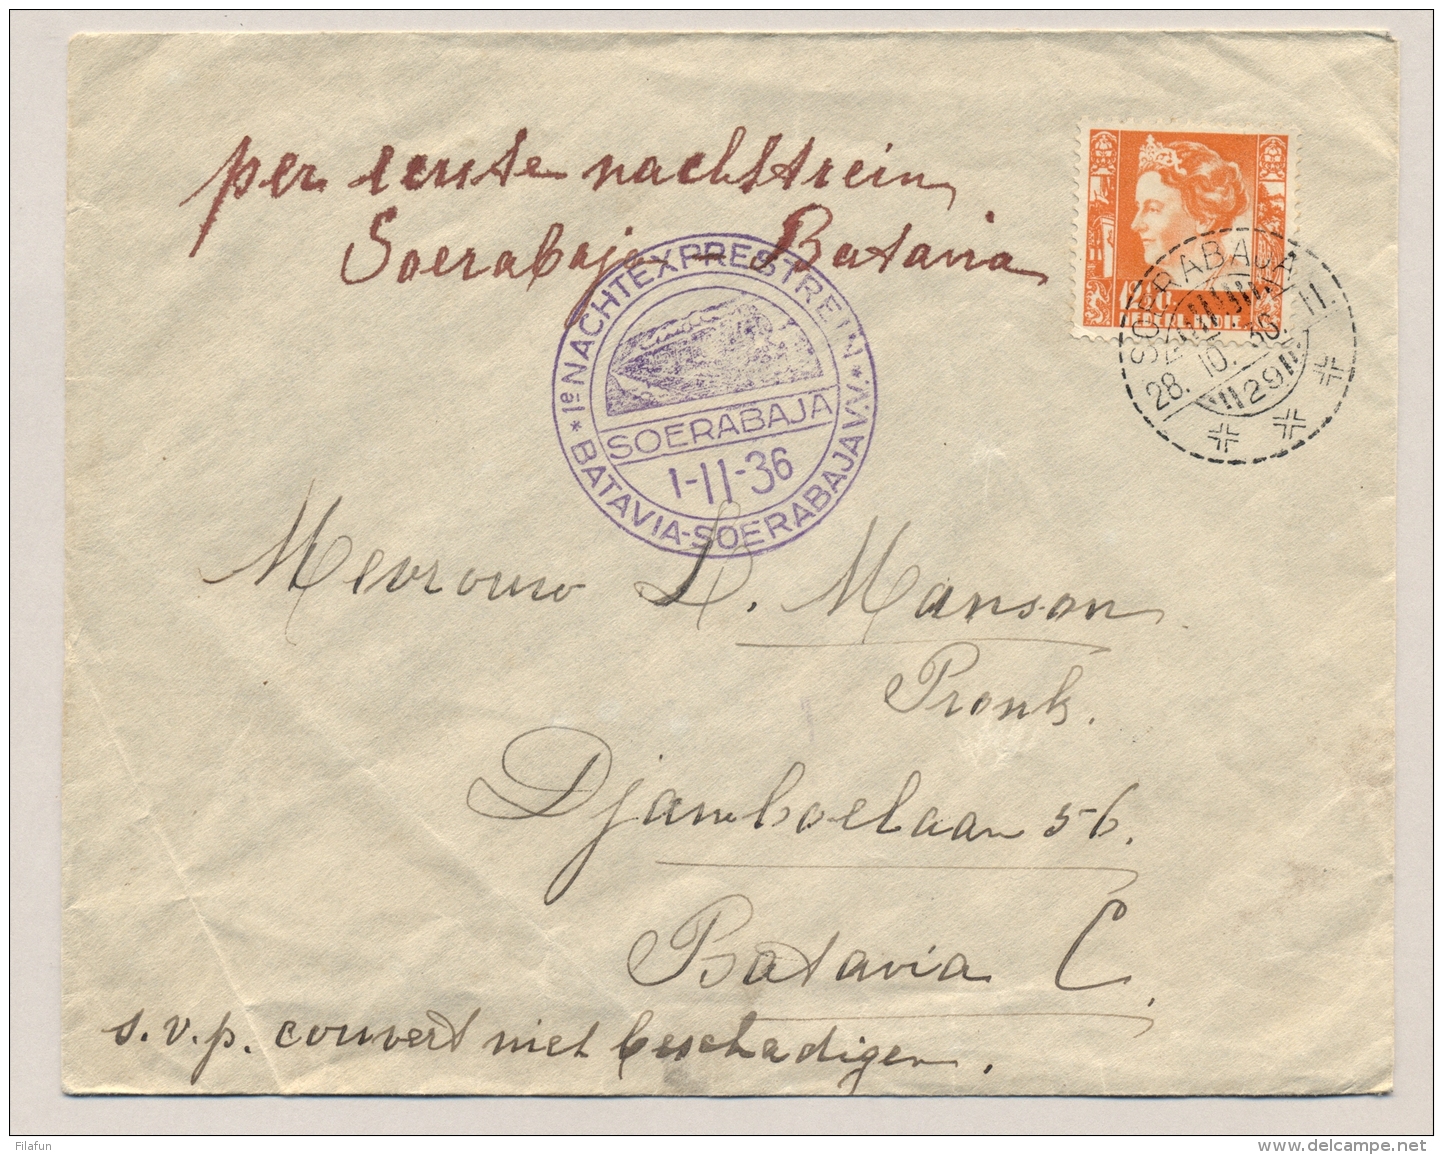 per eerste nachttrein
Soerabaja - Batavia
1e NACHTEXPRESTREIN
* BATAVIA-SOERABAJA V.V. *
SOERABAJA
1-11-36
SOERABAJA
28.10.36.11.
29
NED. INDIE
Mevrouw L. Manson
Pronk.
Djamboelaan 56.
Batavia C.
s.v.p. couvert niet beschadigen.
Filafun
www.delcampe.net